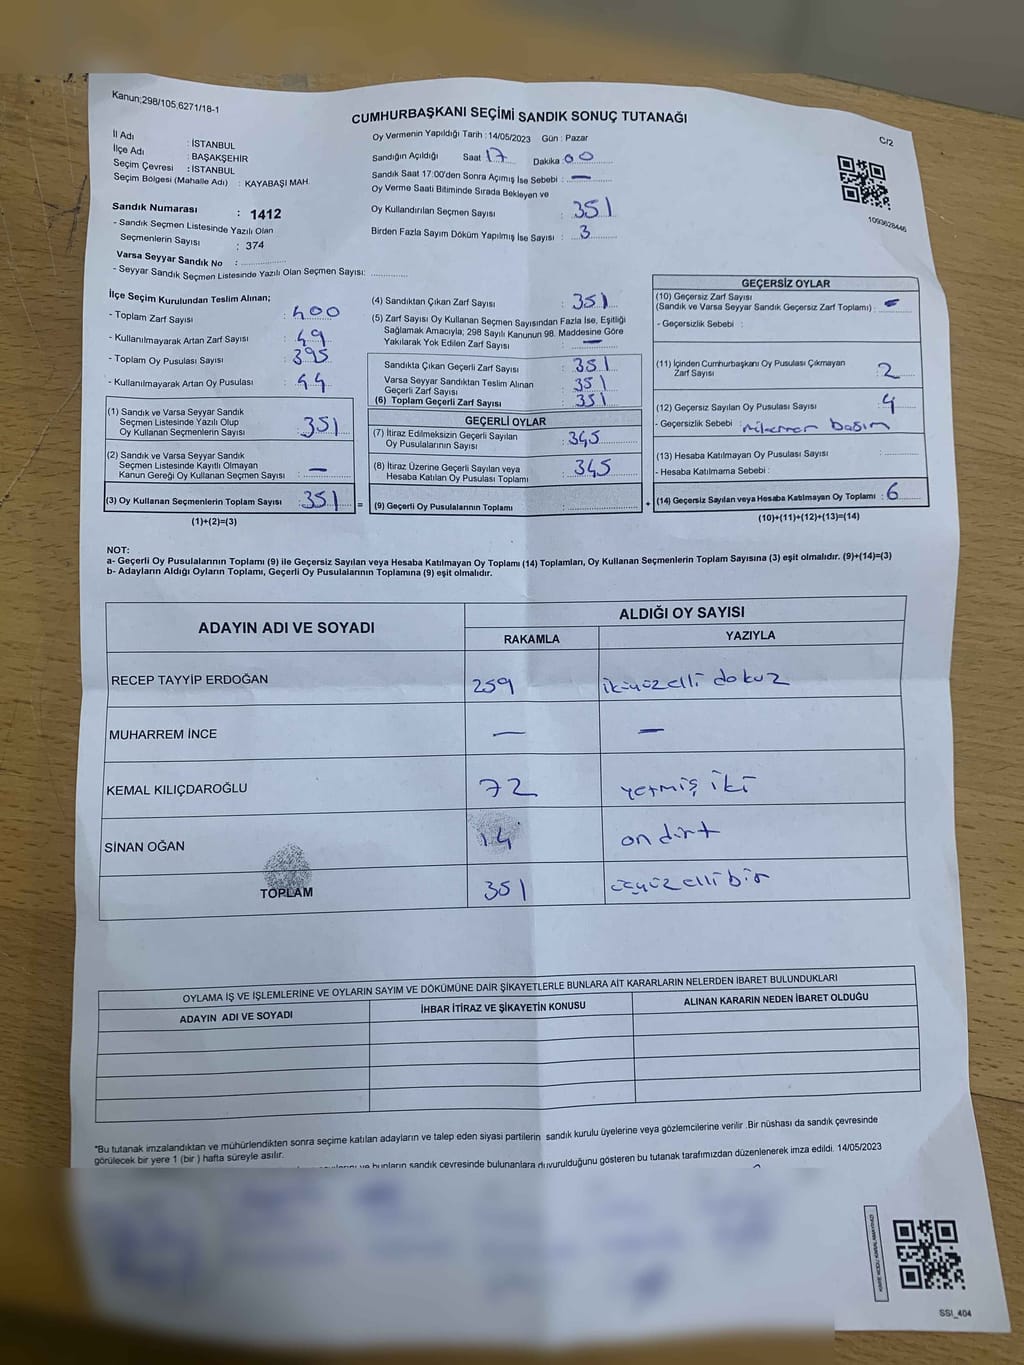 Kanun;298/105,6271/18-1
CUMHURBAŞKANI SEÇİMİ SANDIK SONUÇ TUTANAĞI
C/2
İl Adı : İSTANBUL
İlçe Adı : BAŞAKŞEHİR
Seçim Çevresi : İSTANBUL
Seçim Bölgesi (Mahalle Adı) : KAYABAŞI MAH.
Oy Vermenin Yapıldığı Tarih : 14/05/2023 Gün : Pazar
Sandığın Açıldığı Saat 17 Dakika 00
Sandık Saat 17:00'den Sonra Açımış İse Sebebi : —
Oy Verme Saati Bitiminde Sırada Bekleyen ve
Oy Kullandırılan Seçmen Sayısı : 351
Birden Fazla Sayım Döküm Yapılmış İse Sayısı : 3
1093628446
Sandık Numarası : 1412
- Sandık Seçmen Listesinde Yazılı Olan
Seçmenlerin Sayısı : 374
Varsa Seyyar Sandık No :
- Seyyar Sandık Seçmen Listesinde Yazılı Olan Seçmen Sayısı:
İlçe Seçim Kurulundan Teslim Alınan;
- Toplam Zarf Sayısı : 400
- Kullanılmayarak Artan Zarf Sayısı : 49
- Toplam Oy Pusulası Sayısı : 395
- Kullanılmayarak Artan Oy Pusulası : 44
(1) Sandık ve Varsa Seyyar Sandık
Seçmen Listesinde Yazılı Olup
Oy Kullanan Seçmenlerin Sayısı : 351
(2) Sandık ve Varsa Seyyar Sandık
Seçmen Listesinde Kayıtlı Olmayan
Kanun Gereği Oy Kullanan Seçmen Sayısı : —
(3) Oy Kullanan Seçmenlerin Toplam Sayısı : 351 =
(1)+(2)=(3)
(4) Sandıktan Çıkan Zarf Sayısı : 351
(5) Zarf Sayısı Oy Kullanan Seçmen Sayısından Fazla İse, Eşitliği
Sağlamak Amacıyla; 298 Sayılı Kanunun 98. Maddesine Göre
Yakılarak Yok Edilen Zarf Sayısı : —
Sandıkta Çıkan Geçerli Zarf Sayısı : 351
Varsa Seyyar Sandıktan Teslim Alınan
Geçerli Zarf Sayısı : 351
(6) Toplam Geçerli Zarf Sayısı : 351
GEÇERLİ OYLAR
(7) İtiraz Edilmeksizin Geçerli Sayılan
Oy Pusulalarının Sayısı : 345
(8) İtiraz Üzerine Geçerli Sayılan veya
Hesaba Katılan Oy Pusulası Toplamı : 345
(9) Geçerli Oy Pusulalarının Toplamı : +
GEÇERSİZ OYLAR
(10) Geçersiz Zarf Sayısı
(Sandık ve Varsa Seyyar Sandık Geçersiz Zarf Toplamı) : -
- Geçersizlik Sebebi :
(11) İçinden Cumhurbaşkanı Oy Pusulası Çıkmayan
Zarf Sayısı : 2
(12) Geçersiz Sayılan Oy Pusulası Sayısı : 4
- Geçersizlik Sebebi : basım
(13) Hesaba Katılmayan Oy Pusulası Sayısı :
- Hesaba Katılmama Sebebi :
(14) Geçersiz Sayılan veya Hesaba Katılmayan Oy Toplamı : 6
(10)+(11)+(12)+(13)=(14)
NOT:
a- Geçerli Oy Pusulalarının Toplamı (9) ile Geçersiz Sayılan veya Hesaba Katılmayan Oy Toplamı (14) Toplamları, Oy Kullanan Seçmenlerin Toplam Sayısına (3) eşit olmalıdır. (9)+(14)=(3)
b- Adayların Aldığı Oyların Toplamı, Geçerli Oy Pusulalarının Toplamına (9) eşit olmalıdır.
ADAYIN ADI VE SOYADI
ALDIĞI OY SAYISI
RAKAMLA YAZIYLA
RECEP TAYYİP ERDOĞAN 259 ikiyüzelli dokuz
MUHARREM İNCE — —
KEMAL KILIÇDAROĞLU 72 yetmiş iki
SİNAN OĞAN 14 on dört
TOPLAM 351 üçyüzellibir
OYLAMA İŞ VE İŞLEMLERİNE VE OYLARIN SAYIM VE DÖKÜMÜNE DAİR ŞİKAYETLERLE BUNLARA AİT KARARLARIN NELERDEN İBARET BULUNDUKLARI
ADAYIN ADI VE SOYADI İHBAR İTİRAZ VE ŞİKAYETİN KONUSU ALINAN KARARIN NEDEN İBARET OLDUĞU
*Bu tutanak imzalandıktan ve mühürlendikten sonra seçime katılan adayların ve talep eden siyasi partilerin sandık kurulu üyelerine veya gözlemcilerine verilir .Bir nüshası da sandık çevresinde
görülecek bir yere 1 (bir ) hafta süreyle asılır.
ve bunların sandık çevresinde bulunanlara duyurulduğunu gösteren bu tutanak tarafımızdan düzenlenerek imza edildi. 14/05/2023
SSI_404